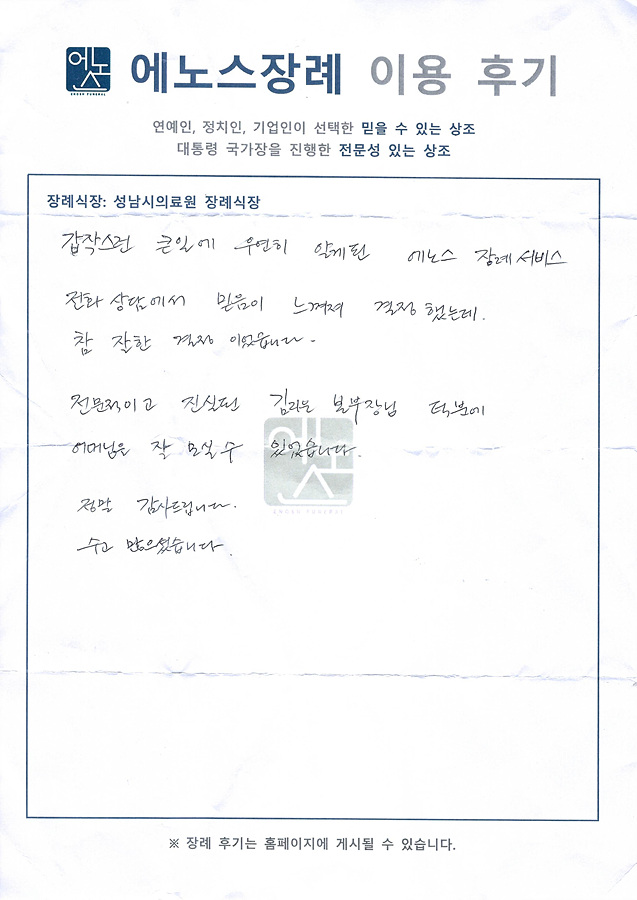 에노스
ENOUS FUNERAL
에노스장례 이용 후기
연예인, 정치인, 기업인이 선택한 믿을 수 있는 상조
대통령 국가장을 진행한 전문성 있는 상조
장례식장: 성남시의료원 장례식장
갑작스런 큰일에 우연히 알게된 에노스 장례서비스
전화 상담에서 믿음이 느껴져 결정했는데.
참 잘한 결정 이었습니다.
전문적이고 진실된 본부장님 덕분에
어머님을 잘 모실수 있었습니다.
정말 감사드립니다.
수고 많으셨습니다.
※ 장례 후기는 홈페이지에 게시될 수 있습니다.